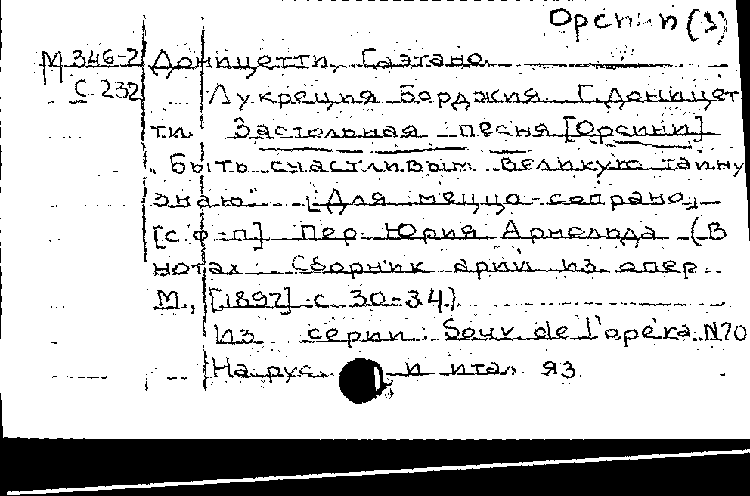 Орсини (3)
М 346-2 Доницетти, Гаэтано.
С 232 Лукреция Борджия. Г. Доницет
ти. Застольная песня [Орсини]
"Быть счастливым великую тайну
знаю". [Для меццо-сопрано,
[с ф.-п] Пер. Юрия Арнольда (В
нотах: Сборник арий из опер.
М., [1897] с 30-34.)
Из серии: Souv. de l'opéra. N70
На рус. и итал яз.